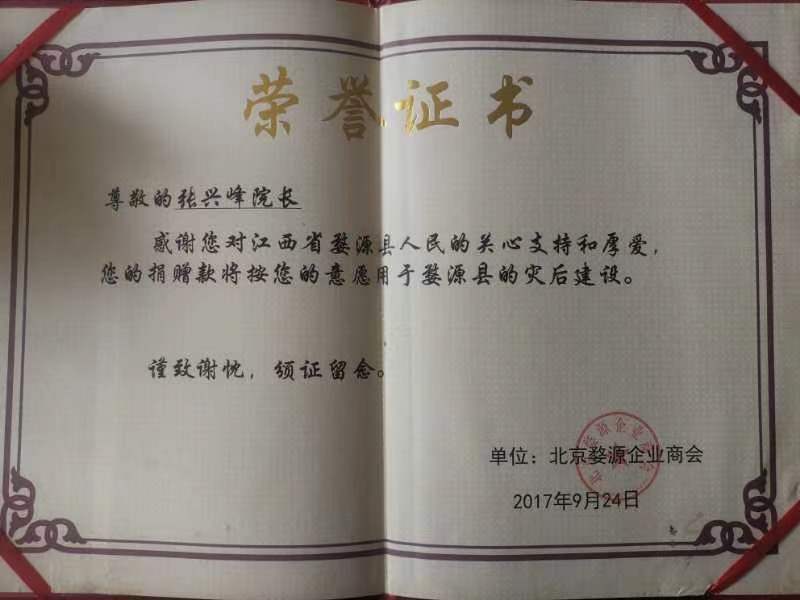 荣誉证书
尊敬的张兴峰院长
感谢您对江西省婺源县人民的关心支持和厚爱，
您的捐赠款将按您的意愿用于婺源县的灾后建设。
谨致谢忱，颁证留念。
单位：北京婺源企业商会
2017年9月24日